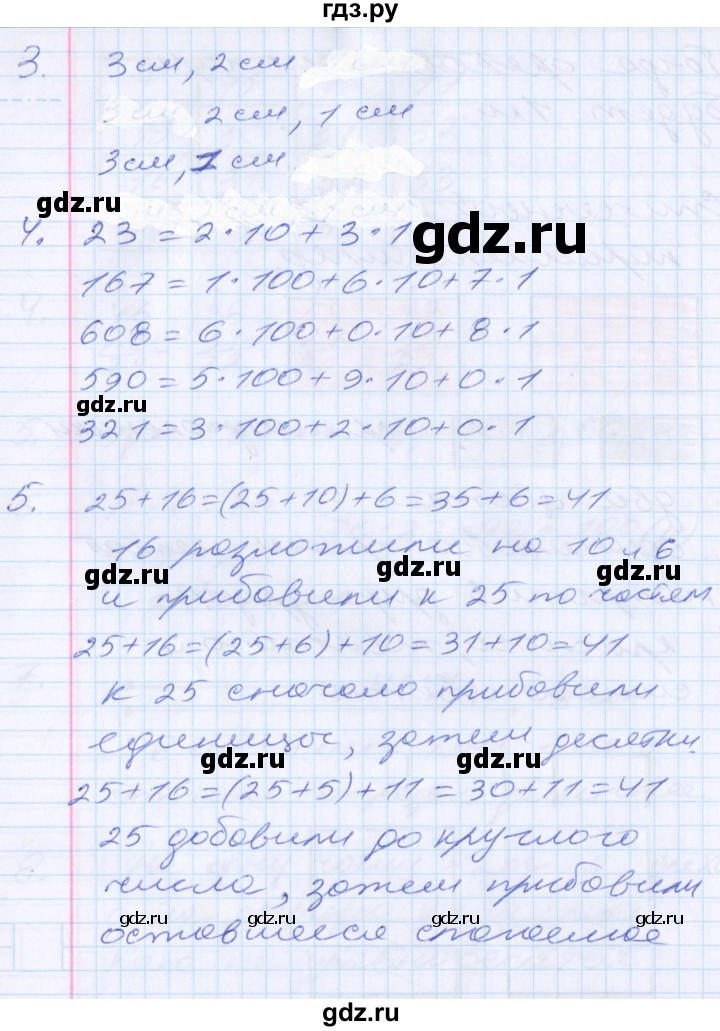 гдз.ру
3. 3 см, 2 см
2 см, 1 см
3 см, 1 см
gdz.ru
4. 23 = 2·10 + 3·1
gdz.ru
167 = 1·100+6·10+7·1
608 = 6·100+0·10+8·1
590 = 5·100+9·10+0·1
gdz.ru
321 = 3·100+2·10+0·1
5. 25+16=(25+10)+6=35+6=41
16 разложили на 10 и 6
gdz.ru gdz.ru gdz.ru
и прибавили к 25 по частям
25+16=(25+6)+10=31+10=41
к 25 сначало прибавили
единицы, затем десятки
gdz.ru gdz.ru
25+16=(25+5)+11=30+11=41
25 добавили до круглого
числа, затем прибавили
gdz.ru gdz.ru gdz.ru gdz.ru
оставшееся слагаемое
gdz.ru